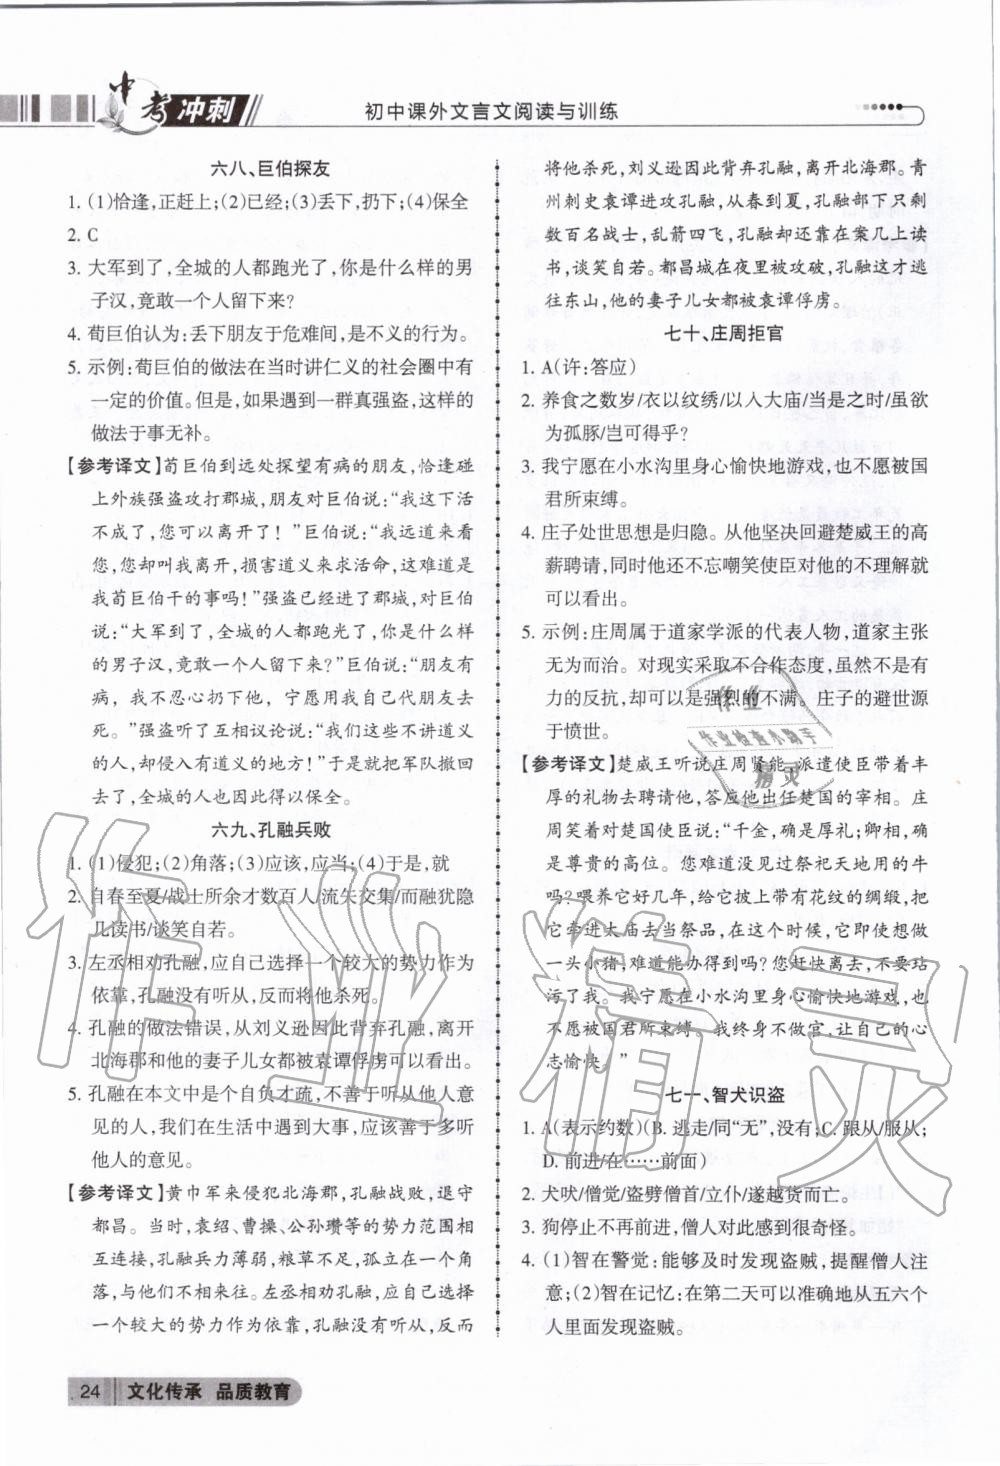 中考冲刺
初中课外文言文阅读与训练
六八、巨伯探友
1. (1)恰逢,正赶上;(2)已经;(3)丢下,扔下;(4)保全
2. C
3. 大军到了,全城的人都跑光了,你是什么样的男
子汉,竟敢一个人留下来?
4. 荀巨伯认为:丢下朋友于危难间,是不义的行为。
5. 示例:荀巨伯的做法在当时讲仁义的社会圈中有
一定的价值。但是,如果遇到一群真强盗,这样的
做法于事无补。
【参考译文】荀巨伯到远处探望有病的朋友,恰逢碰
上外族强盗攻打郡城,朋友对巨伯说:“我这下活
不成了,您可以离开了!”巨伯说:“我远道来看
您,您却叫我离开,损害道义来求活命,这难道是
我荀巨伯干的事吗!”强盗已经进了郡城,对巨伯
说:“大军到了,全城的人都跑光了,你是什么样
的男子汉,竟敢一个人留下来?”巨伯说:“朋友有
病,我不忍心扔下他,宁愿用我自己代朋友去
死。”强盗听了互相议论说:“我们这些不讲道义的
人,却侵入有道义的地方!”于是就把军队撤回
去了,全城的人也因此得以保全。
六九、孔融兵败
1. (1)侵犯;(2)角落;(3)应该,应当;(4)于是,就
2. 自春至夏/战士所余才数百人/流矢交集/而融犹隐
几读书/谈笑自若。
3. 左丞相劝孔融,应自己选择一个较大的势力作为
依靠,孔融没有听从,反而将他杀死。
4. 孔融的做法错误,从刘义逊因此背弃孔融,离开
北海郡和他的妻子儿女都被袁谭俘虏可以看出。
5. 孔融在本文中是个自负才疏,不善于听从他人意
见的人,我们在生活中遇到大事,应该善于多听
他人的意见。
【参考译文】黄巾军来侵犯北海郡,孔融战败,退守
都昌。当时,袁绍、曹操、公孙瓒等的势力范围相
互连接,孔融兵力薄弱,粮草不足,孤立在一个角
落,与他们不相往来。左丞相劝孔融,应自己选择
一个较大的势力作为依靠,孔融没有听从,反而
将他杀死,刘义逊因此背弃孔融,离开北海郡。青
州刺史袁谭进攻孔融,从春到夏,孔融部下只剩
数百名战士,乱箭四飞,孔融却还靠在案几上读
书,谈笑自若。都昌城在夜里被攻破,孔融这才逃
往东山,他的妻子儿女都被袁谭俘虏。
七十、庄周拒官
1. A(许:答应)
2. 养食之数岁/衣以纹绣/以入大庙/当是之时/虽欲
为孤豚/岂可得乎?
3. 我宁愿在小水沟里身心愉快地游戏,也不愿被国
君所束缚。
4. 庄子处世思想是归隐。从他坚决回避楚威王的高
薪聘请,同时他还不忘嘲笑使臣对他的不理解就
可以看出。
5. 示例:庄周属于道家学派的代表人物,道家主张
无为而治。对现实采取不合作态度,虽然不是有
力的反抗,却可以是强烈的不满。庄子的避世源
于愤世。
【参考译文】楚威王听说庄周贤能,派遣使臣带着丰
厚的礼物去聘请他,答应他出任楚国的宰相。庄
周笑着对楚国使臣说:“千金,确是厚礼;卿相,确
是尊贵的高位。您难道没见过祭祀天地用的牛
吗?喂养它好几年,给它披上带有花纹的绸缎,把
它牵进太庙去当祭品,在这个时候,它即使想做
一头小猪,难道能办得到吗?您赶快离去,不要玷
污了我。我宁愿在小水沟里身心愉快地游戏,也
不愿被国君所束缚。我终身不做官,让自己的心
志愉快。”
七一、智犬识盗
1. A(表示约数)(B. 逃走/同“无”,没有;C. 跟从/服从;
D. 前进/在……前面)
2. 犬吠/僧觉/盗劈僧首/立仆/遂越货而亡。
3. 狗停止不再前进,僧人对此感到很奇怪。
4. (1)智在警觉:能够及时发现盗贼,提醒僧人注
意;(2)智在记忆:在第二天可以准确地从五六个
人里面发现盗贼。
作业
作业检查小助手
精灵
作业精灵
24 文化传承 品质教育